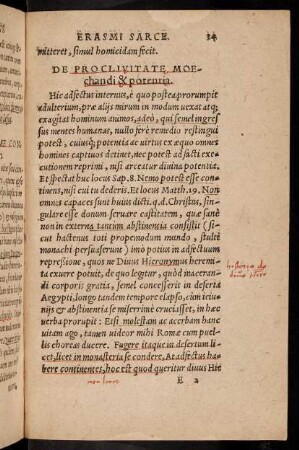 ERASMI SARCE. 34
mitteret, simul homicidam fecit.
DE PROCLIVITATE MOE-
chandi & potentia.
Hic adfectus internus, è quo postea prorumpit
adulterium, præ alijs mirum in modum uexat atq;
exagitat hominum animos, adeò, qui semel ingres
sus mentes humanas, nullo ferè remedio restingui
potest, cuius'q; potentia ac uirtus ex æquo omnes
homines captiuos detinet, nec potest ad facti exe-
cutionem reprimi, nisi arceatur diuina potentia.
Et spectat huc locus Sap. 8. Nemo potest esse con
tinens, nisi cui tu dederis. Et locus Matth. 19. Non
omnes capaces sunt huius dicti. q.d. Christus, sin-
gulare esse donum seruare castitatem, quæ sanè
non in externa tantum abstinentia consistit (si
cut hactenus toti propemodum mundo, stulti
monachi persuaserunt) imò potius in adfectuum
repressione, quos ne Diuus Hieronymus heremita
exuere potuit, de quo legitur, quòd maceran-
di corporis gratia, semel concesserit in deserta
Aegypti, longo tandem tempore elapso, cum ieiu-
nijs & abstinentia se miserrimè cruciasset, in hæc
uerba prorupit: Etsi molestam ac acerbam hanc
uitam ago, tamen uideor mihi Romæ cum puel-
lis choreas ducere. Fugere itaque in desertum li-
cet, licet in monasteria se condere, At adfectus ha-
bere continentes, hoc est quod queritur diuus Hie
E 2